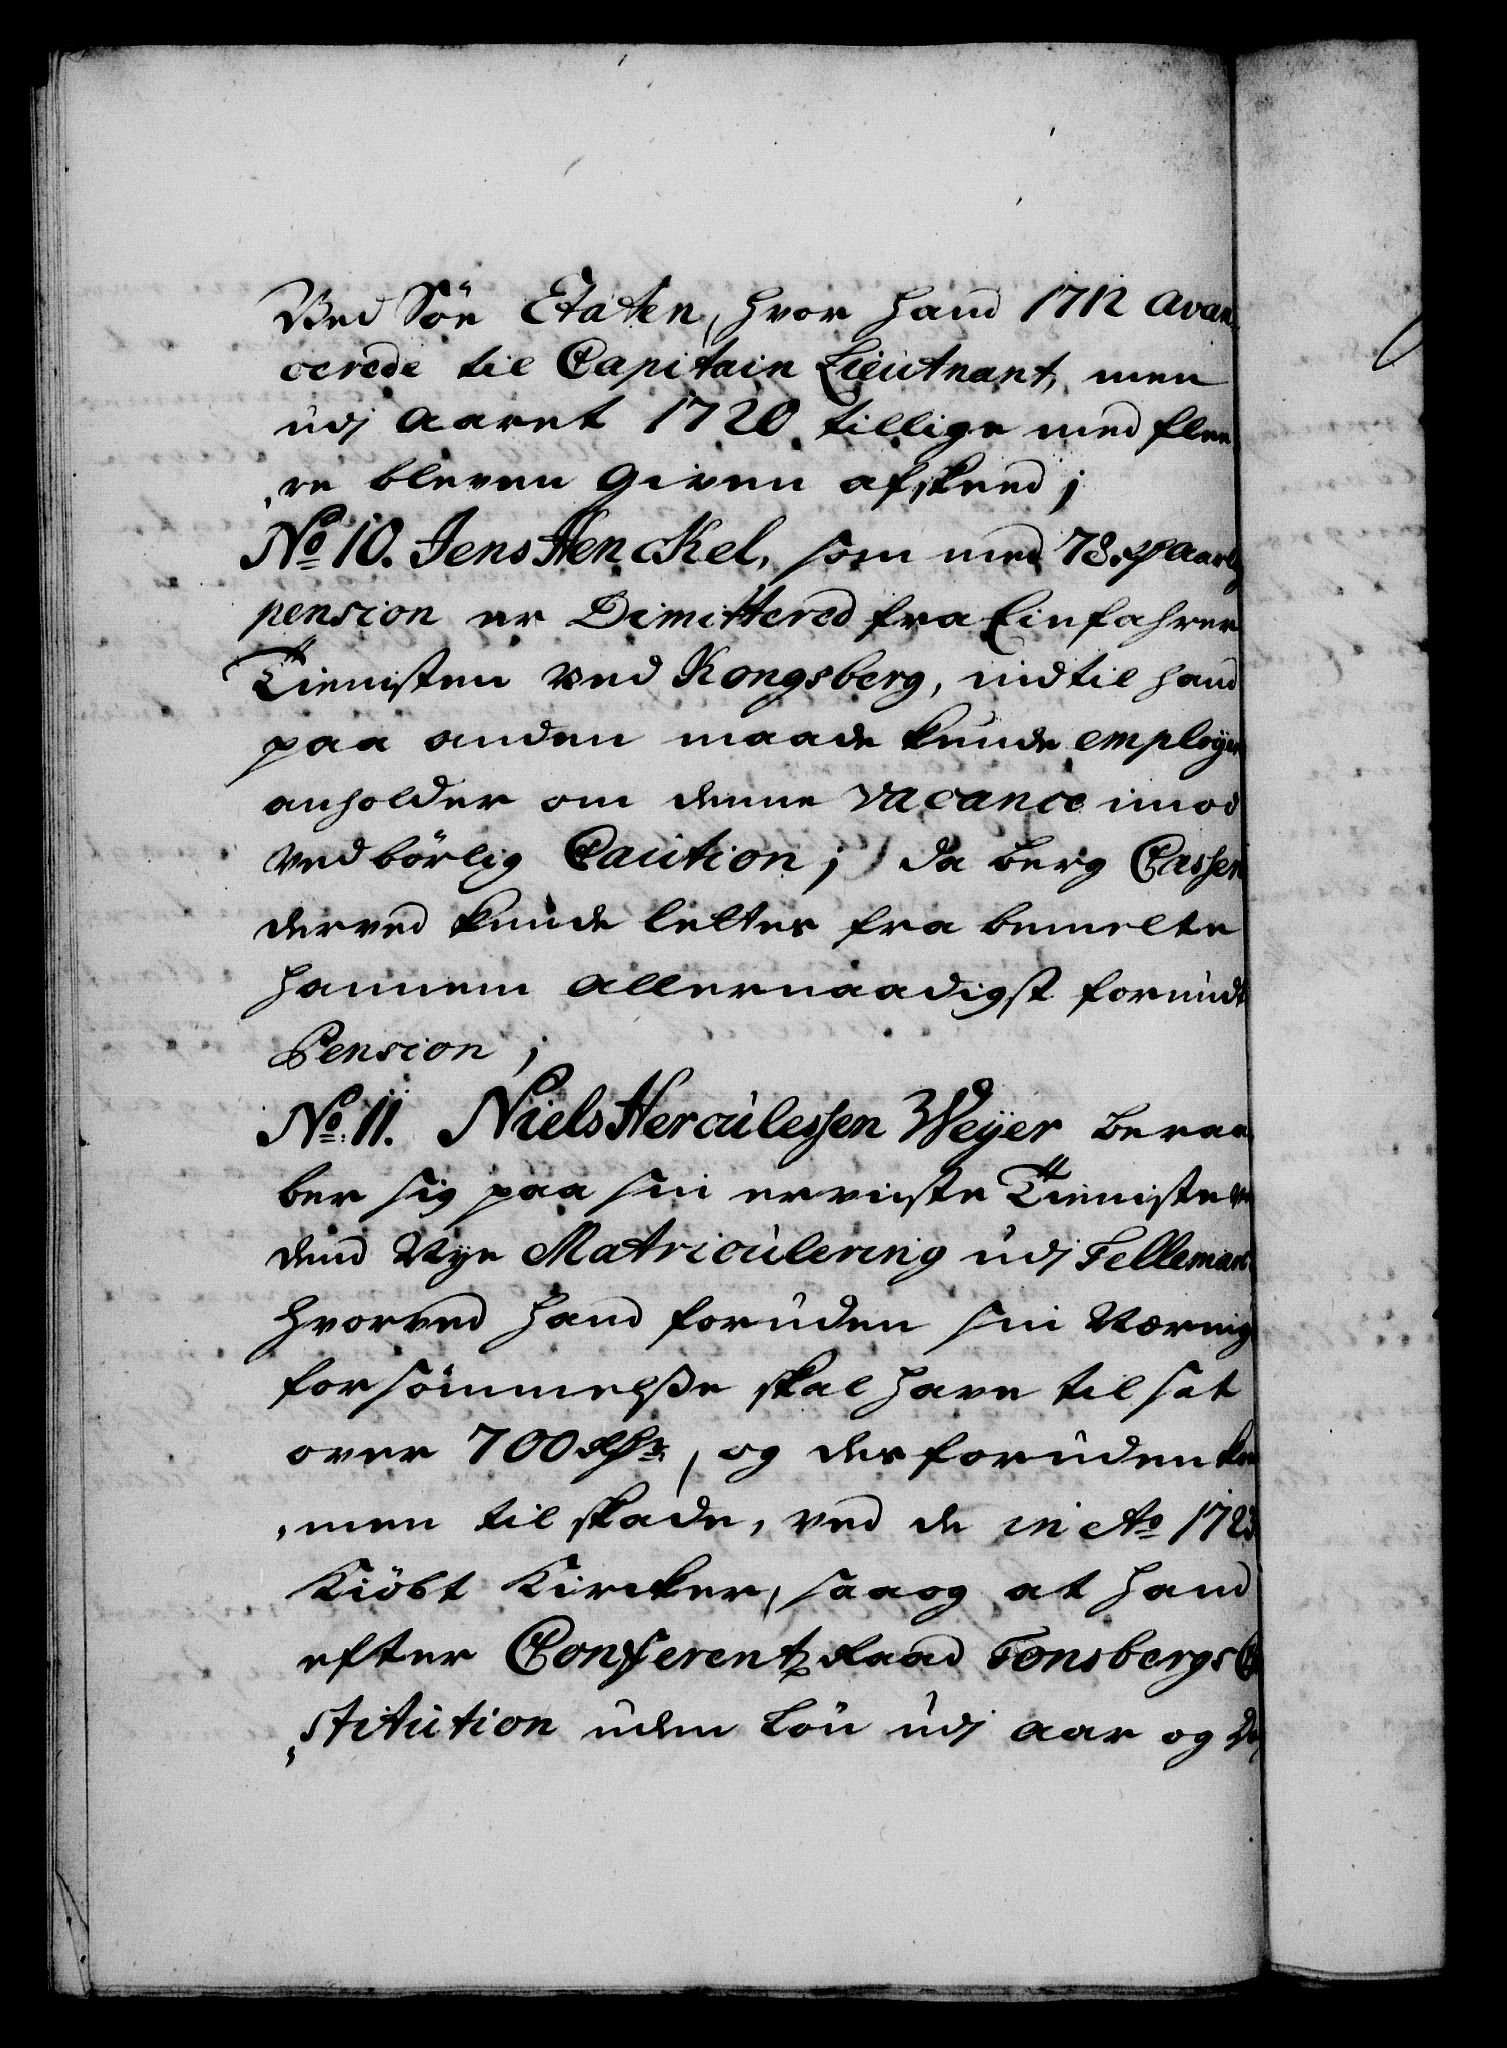 Ved Söe Etaten, hvor hand 1712 avan-
cerede til Capitain Lieutnant, men
udj Aaret 1720 tillige med flee-
,re bleven given afskeed;
No 10. Jens Henckel, som med 78 Rdr aarlig
pension er Dimittered fra Einfahrer
Tienisten ved Kongsberg, indtil hand
paa anden maade kunde employe
anholder om denne vacance imod
vedbörlig Caution; da Berg Cassen
derved kunde lettes fra bemelte
hannem allernaadigst forundte
Pension;
No: 11. Niels Herculessen Weÿer beraa-
ber sig paa sin erviiste Tieniste ve
dend Nye Matriculering udj Tellemar
hvorved hand foruden sin Nærings
forsömmelsse skal have til sat
over 700 Rdr, og desforuden kom
,men til skade, ved de in Ao 1723
Kiöbt Kircker, saa og at hand
efter Conferentz Raad Tonsbergs Con
,stitution uden Lön udj aar og